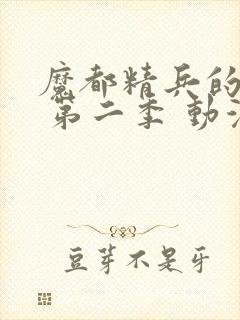 魔都精兵的
第二季 動
豆芽不是牙